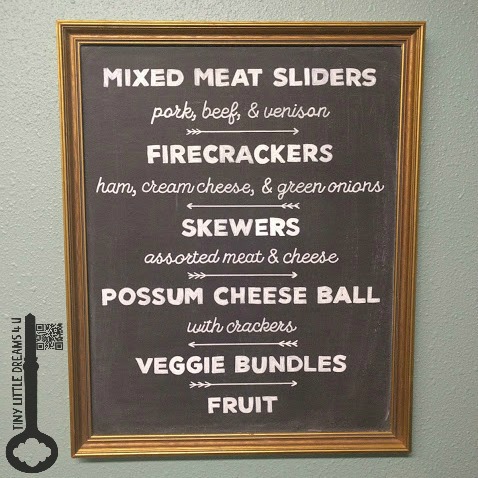 MIXED MEAT SLIDERS
pork, beef, & venison
FIRECRACKERS
ham, cream cheese, & green onions
SKEWERS
assorted meat & cheese
POSSUM CHEESE BALL
with crackers
VEGGIE BUNDLES
FRUIT
TINY LITTLE DREAMS 4 U